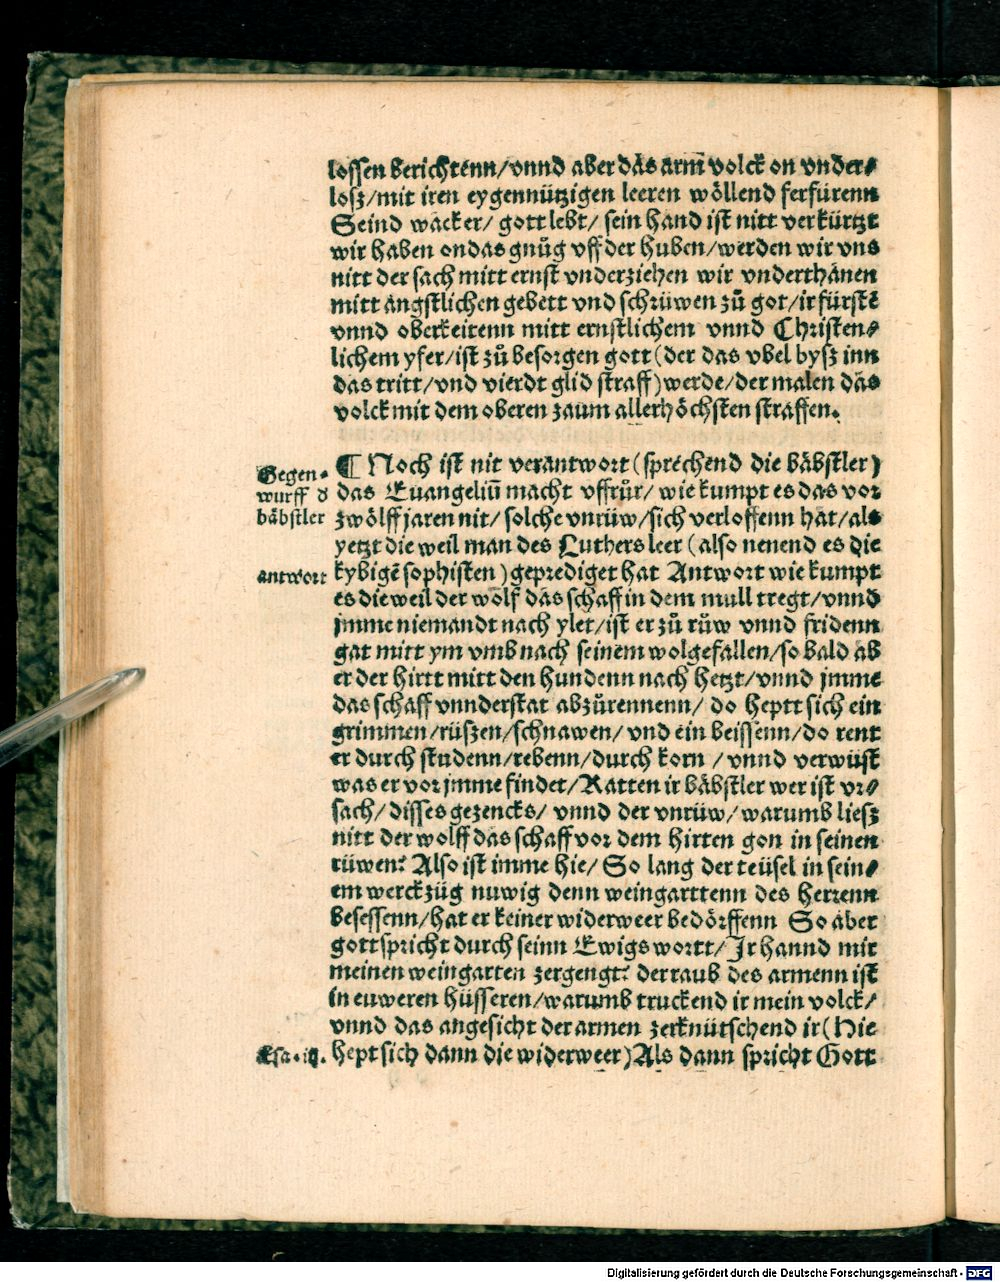 lossen berichtenn/vnnd aber däs arm̄ volck on vnder⸗
losz/mit iren eygennützigen leeren wöllend ferfürenn
Seind wacker/ gott lebt/ sein hand ist nitt verkürtzt
wir haben on das gnůg vff der huben/werden wir vns
nitt der sach mitt ernst vnderziehen wir vnderthänen
mitt ängstlichen gebett vnd schrüwen zů got/ir fürstē
vnnd oberkeitenn mitt ernstlichem vnnd Christen⸗
lichem yfer/ist zů besorgen gott(der das vbel bysz inn
das tritt/vnd vierdt glid straff)werde/der malen däs
volck mit dem oberen zaum allerhöchsten straffen.
Gegen⸗
wurff d
bäbstler
¶ Noch ist nit verantwort(sprechend die bäbstler)
das Euangeliū macht vffrůr/ wie kumpt es das vor
zwölff jaren nit/ solche vnrüw/sich verloffenn hat/als
yetzt die weil man des Luthers leer (also nenend es die
antwort
kybigē sophisten)geprediget hat Antwort wie kumpt
es die weil der wolf das schaff in dem mull tregt/vnnd
jmme niemandt nach ylet/ist er zů růw vnnd fridenn
gat mitt ym vmb nach seinem wolgefallen/so bald ab
er der hirtt mitt den hundenn nach hetzt/vnnd jmme
das schaff vnnderstat abzůrennenn/ do heptt sich ein
grimmen/rüszen/schnawen/ vnd ein beissenn/do rent
er durch studenn/rebenn/durch korn / vnnd verwüst
was er vor jmme findet/Ratten ir bäbstler wer ist vr⸗
sach/ disses gezencks/ vnnd der vnrüw/warumb liesz
nitt der wolff das schaff vor dem hirten gon in seinen
rüwen? Also ist imme hie/ So lang der teüfel in sein⸗
em werckzüg nuwig denn weingarttenn des herrenn
besessenn/hat er keiner widerweer bedörffenn So aber
gott spricht durch seinn Ewigs wortt/Jr hannd mir
meinen weingarten zergengt? der raub des armenn ist
in euweren hüsseren/warumb truckend ir mein volck/
vnnd das angesicht der armen zerknütschend ir(Hie
Esa. iij.
hept sich dann die widerweer)Als dann spricht Gott
Digitalisierung gefördert durch die Deutsche Forschungsgemeinschaft - DFG